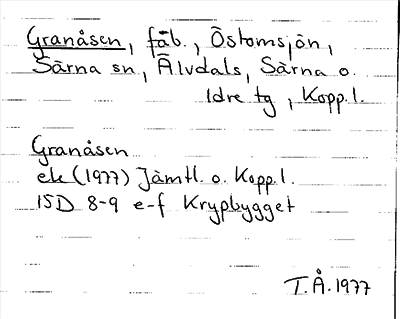 Granåsen, fäb., Östomsjön,
Särna sn, Älvdals, Särna o.
Idre tg, Kopp.l.
Granåsen
ek (1977) Jämtl. o. Kopp.l.
15D 8-9 e-f Krypbygget
T.Å. 1977